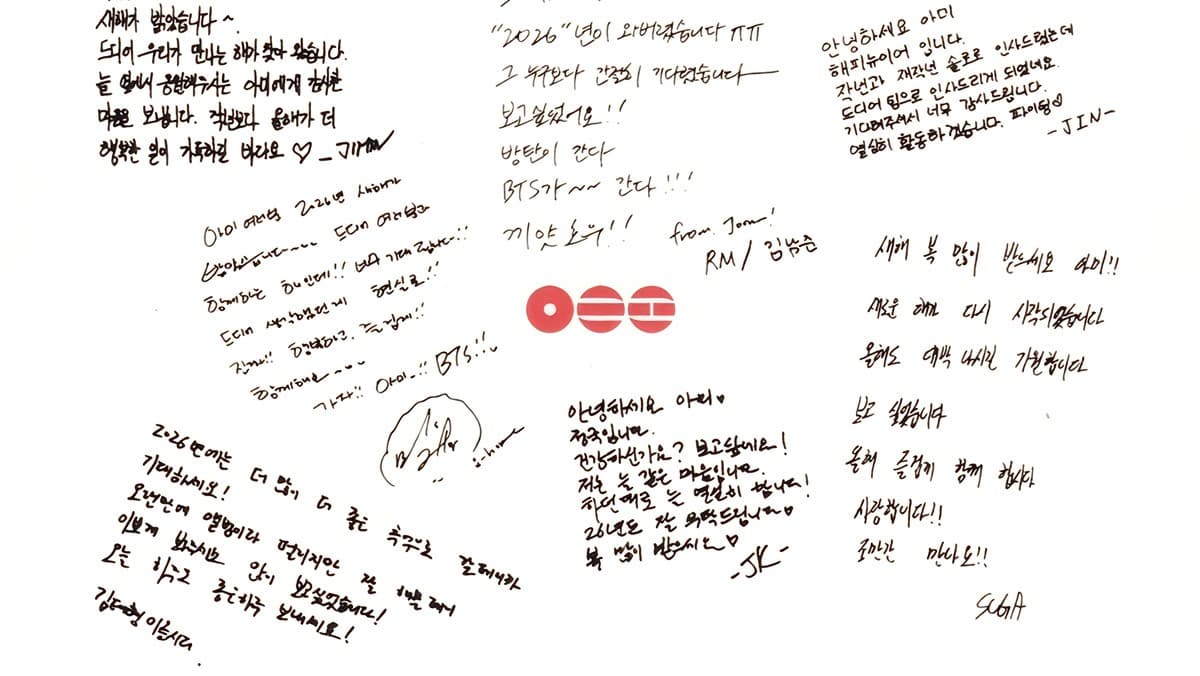 새해가 밝았습니다~
드디어 우리가 만나는 해가 찾아 왔습니다.
늘 옆에서 응원해주시는 아미에게 감사한
마음을 보냅니다. 작년보다 올해가 더
행복한 일이 가득하길 바라요 ♡ - JIMIN
"2026"년이 와버렸습니다 ㅠㅠ
그 누구보다 간절히 기다렸습니다
보고싶었어요!!
방탄이 간다
BTS가~~ 간다!!!
끼얏호우!!
from. Joon!
RM / 김남준
안녕하세요 아미
해피뉴이어 입니다.
작년과 재작년 솔로로 인사드렸는데
드디어 팀으로 인사드리게 되었네요.
기다려주셔서 너무 감사드립니다.
열심히 활동하겠습니다. 파이팅♡
-JIN-
아미 여러분 2026년 새해가
밝았습니다~~ 드디어 여러분과
함께하는 해인데!! 너무 기대됩니다!!
드디어 생각했던게 현실로!!
진짜!! 행복하고, 즐겁게!!
함께해요~
가자!! 아미~!! BTS!!
j-hope
새해 복 많이 받으세요 아미!!
새로운 해가 다시 시작되었습니다
올해도 대박 나시길 기원합니다
보고 싶었습니다
올해 즐겁게 함께 합시다
사랑합니다!!
조만간 만나요!!
SUGA
2026년에는 더 많이 더 좋은 추억으로 갈테니까
기대하세요!
오랜만에 앨범이라 떨리지만 잘 해볼테니
이쁘게 봐주시요 많이 보고싶었습니다!
오늘 하루도 좋은하루 보내세요!
김태형이올시다.
안녕하세요 아미♥
정국입니다.
건강하신가요? 보고싶네요!
저는 늘 같은 마음입니다.
하던대로 늘 열심히 합니다!
26년도 잘 부탁드립니다♥
복 많이 받으시오♥
-JK-